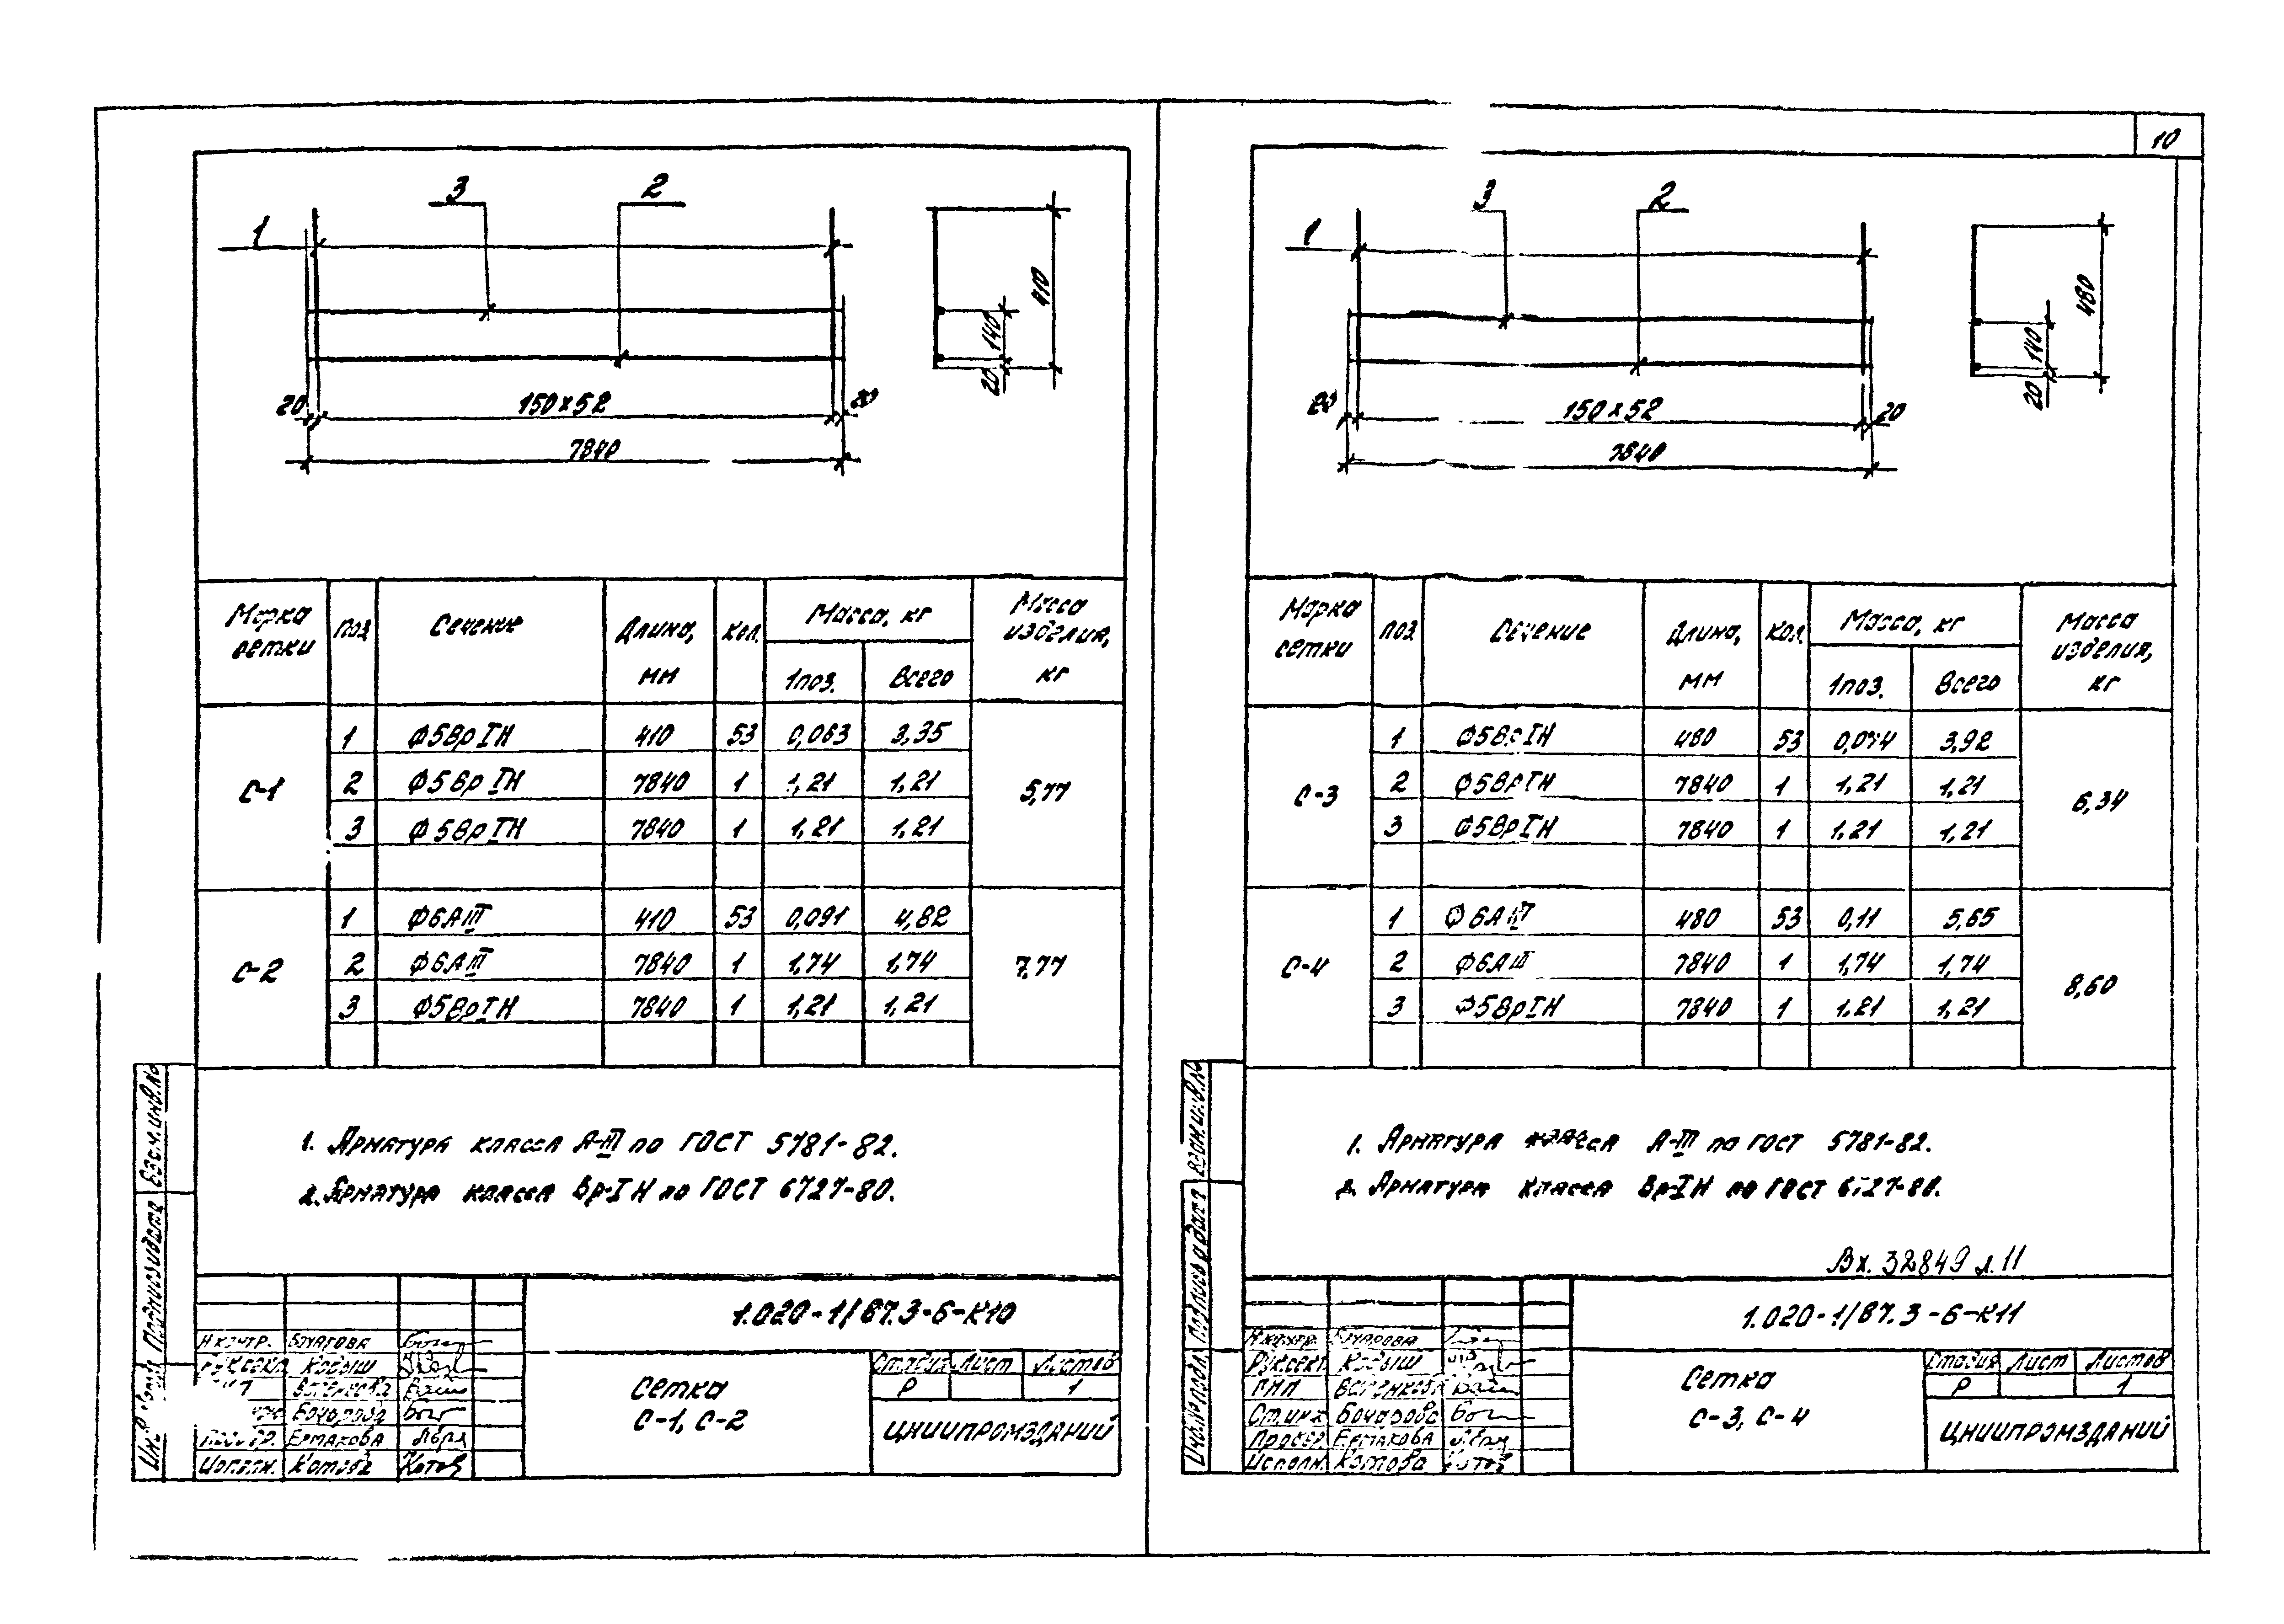 10
3 2
1
410
140
20
20 150×52 20
7840
Марка сетки Поз Сечение Длина, мм Кол. Масса, кг Масса изделия, кг
1поз. Всего
С-1
1 Ф5ВрIН 410 53 0,063 3,35
2 Ф5ВрIН 7840 1 1,21 1,21 5,77
3 Ф5ВрIН 7840 1 1,21 1,21
С-2
1 Ф6АIII 410 53 0,091 4,82
2 Ф6АIII 7840 1 1,74 1,74 7,77
3 Ф5ВрIН 7840 1 1,21 1,21
1. Арматура класса А-III по ГОСТ 5781-82.
2. Арматура класса Вр-IН по ГОСТ 6727-80.
Взам.инв.№
Подпись и дата
1.020-1/87.3-6-К10
Н.контр. Бочарова
Рук.сект. Кодыш
Бочарова
Провер. Ермакова
Исполн. Котова
Сетка
С-1, С-2
Стадия Лист Листов
Р 1
ЦНИИПРОМЗДАНИЙ
3 2
1
480
140
20
20 150×52 20
7840
Марка сетки Поз Сечение Длина, мм Кол. Масса, кг Масса изделия, кг
1поз. Всего
С-3
1 Ф5ВрIН 480 53 0,074 3,92
2 Ф5ВрIН 7840 1 1,21 1,21 6,34
3 Ф5ВрIН 7840 1 1,21 1,21
С-4
1 Ф6АIII 480 53 0,11 5,65
2 Ф6АIII 7840 1 1,74 1,74 8,60
3 Ф5ВрIН 7840 1 1,21 1,21
1. Арматура класса А-III по ГОСТ 5781-82.
2. Арматура класса Вр-IН по ГОСТ 6727-80.
Вх. 32849 л.11
Взам.инв.№
Подпись и дата
Инв.№ подл.
1.020-1/87.3-6-К11
Н.контр. Бочарова
Рук.сект. Кодыш
ГИП
Ст.инж Бочарова
Провер. Ермакова
Исполн. Котова
Сетка
С-3, С-4
Стадия Лист Листов
Р 1
ЦНИИПРОМЗДАНИЙ